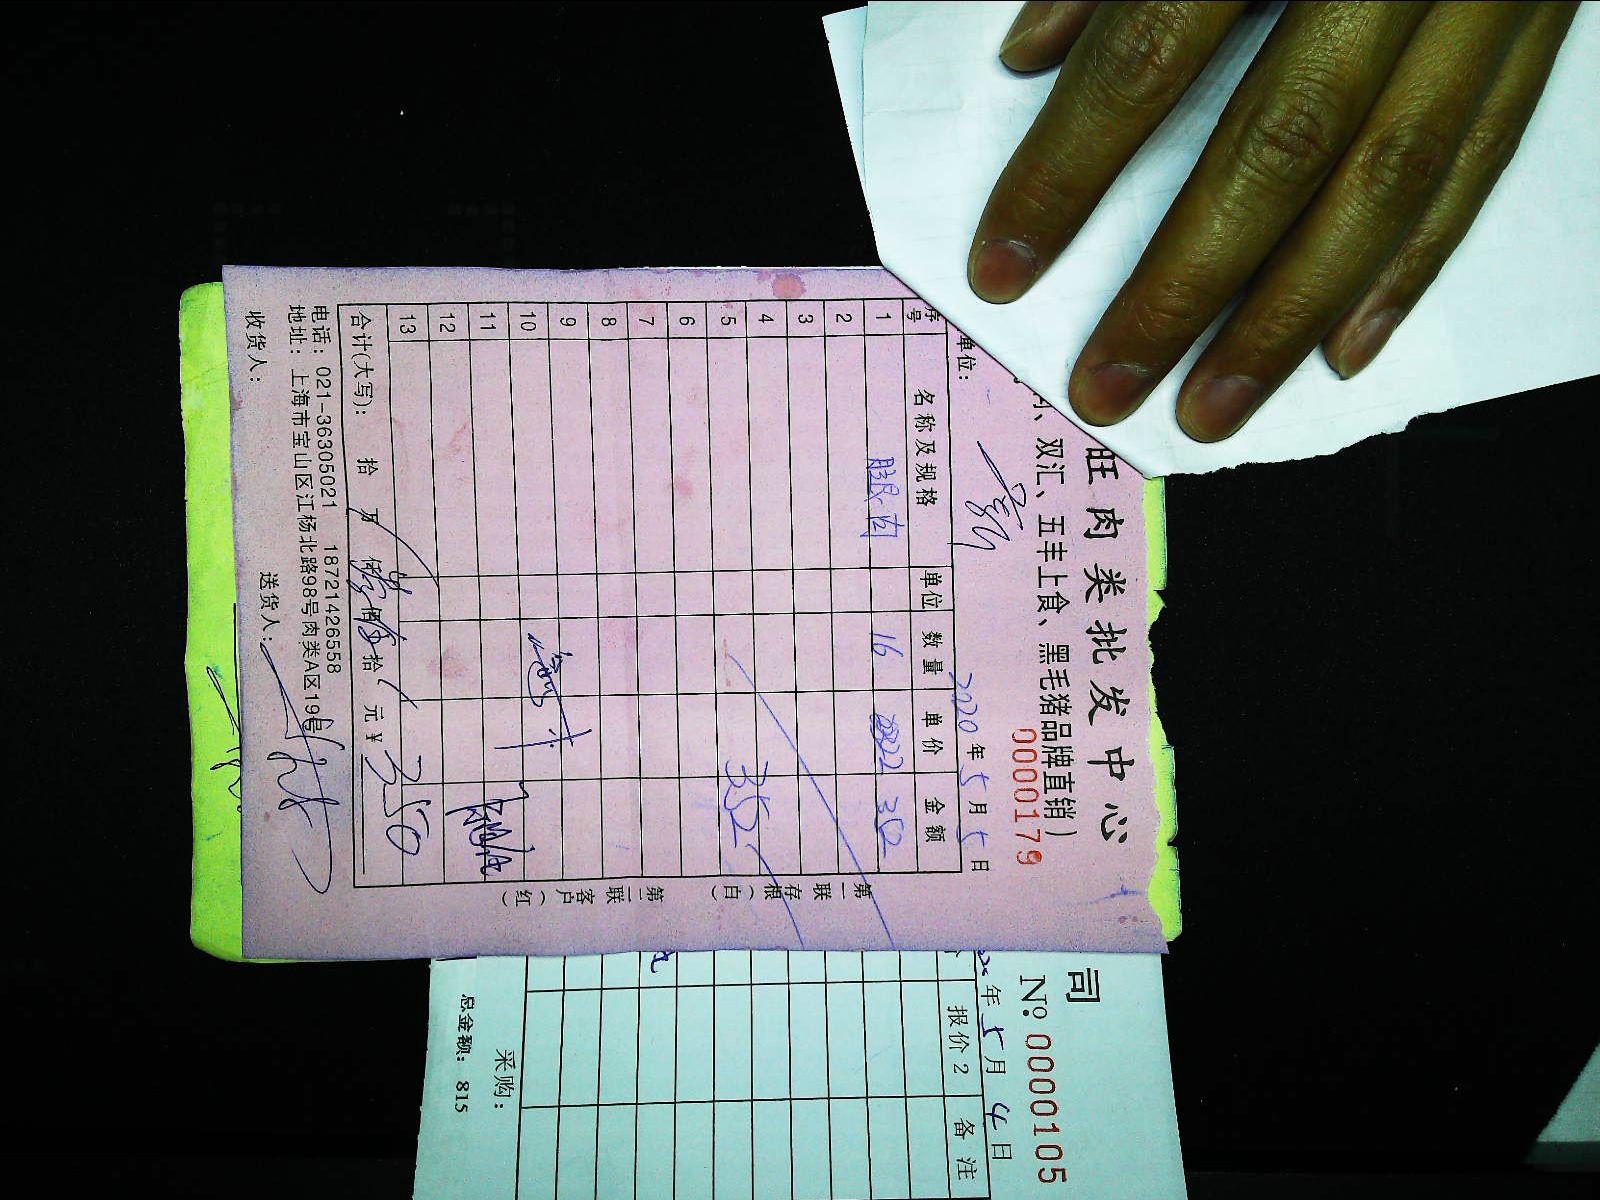 旺肉类批发中心
、双汇、五丰上食、黑毛猪品牌直销）
0000179
单位：
2020年5月5日
序号 名称及规格 单位 数量 单价 金额
1 腿肉 16 22 352
2
3
4
5 352
6
7
8
9
10
11
12
13
合计(大写)： 拾 万 仟 佰 拾 元 ¥ 350
电话：021-36305021 18721426558
地址：上海市宝山区江杨北路98号肉类A区19号
收货人： 送货人：
第一联 存根（白） 第二联 客户（红）
司
№.0000105
年5月4日
报价2 备注
采购：
总金额：815